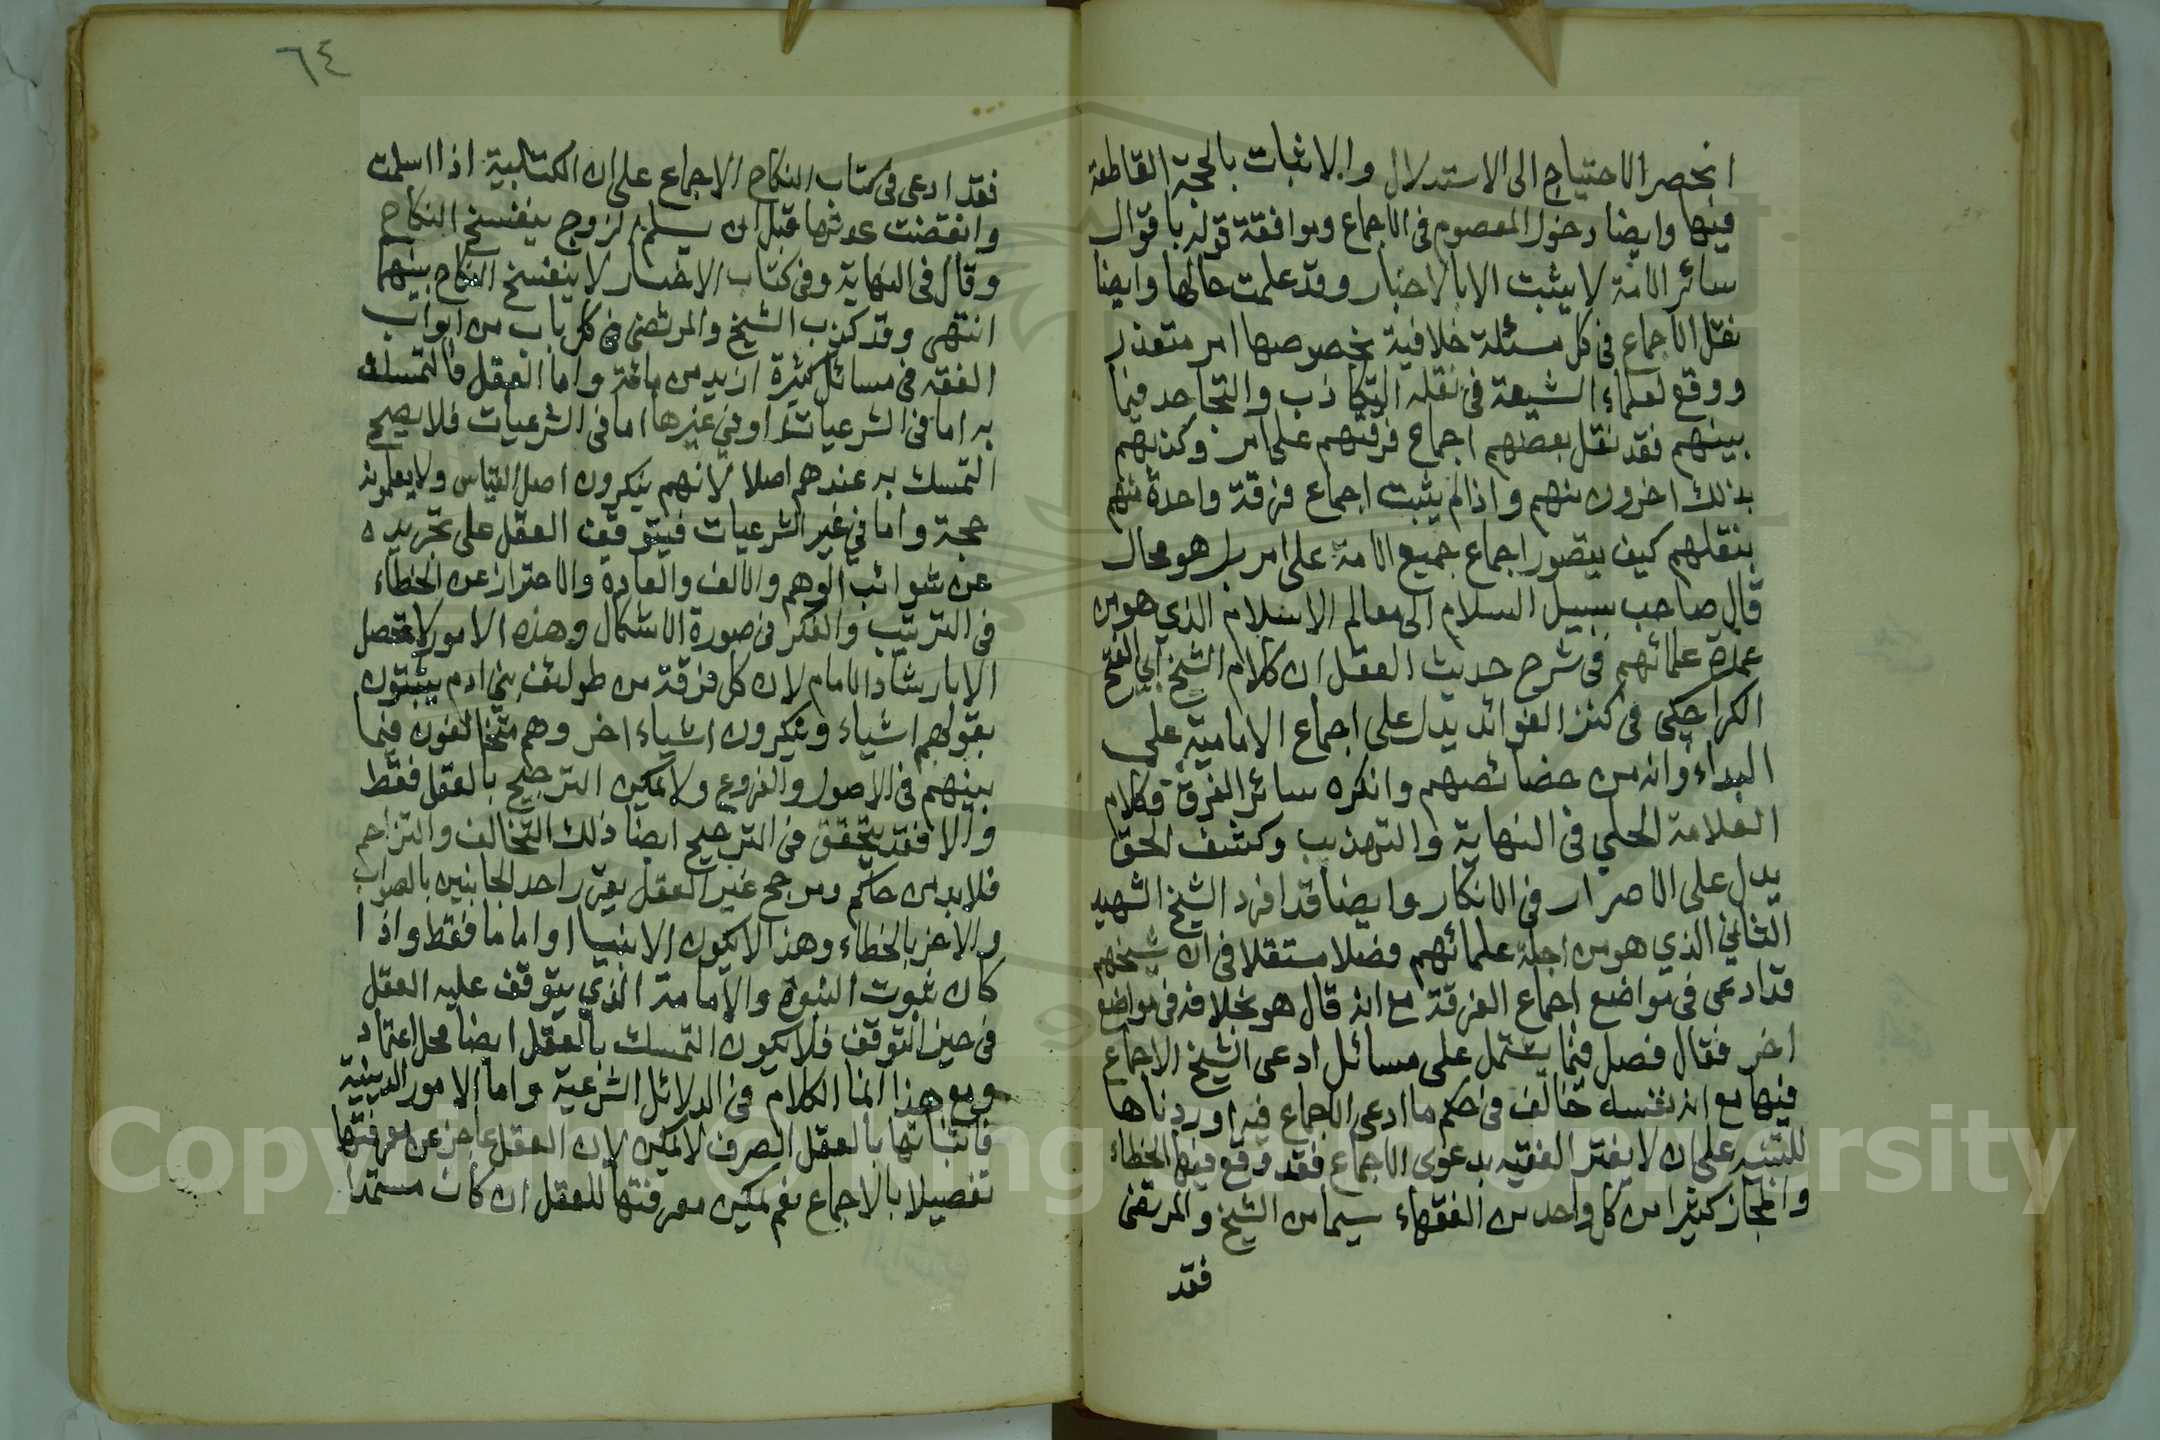 انحصر الاحتياج الى الاستدلال والاثبات بالحجة القاطعة
فيها وايضا دخول المعصوم فى الاجماع وموافقة قوله باقوال
سائر الامة لا يثبت الا بالاخبار وقد علمت حالها وايضا
نقل الاجماع فى كل مسئلة خلافية بخصوصها امر متعذر
ووقع لعلماء الشيعة فى نقله التكاذب والتجاحد فيما
بينهم فقد نقل بعضهم اجماع فرقتهم على امر وكذبهم
بذلك اخرون منهم واذا لم يثبت اجماع فرقة واحدة منهم
بنقلهم كيف يتصور اجماع جميع الامة على امر بل هو محال
قال صاحب سبيل السلام الى معالم الاسلام الذي هو من
عمدة علمائهم فى شرح حديث العقل ان كلام الشيخ ابي الفتح
الكراجكي فى كنز الفوائد يدل على اجماع الامامية على
البداء وانه من خصائصهم وانكره سائر الفرق وكلام
العلامة الحلي فى النهاية والتهذيب وكشف الحق
يدل على الاصرار فى الانكار وايضا قد افرد الشيخ الشهيد
الثاني الذي هو من اجلة علمائهم فصلا مستقلا فى ان شيخهم
قد ادعى فى مواضع اجماع الفرقة مع انه قال هو بخلافه فى مواضع
اخر فقال فصل فيما يشتمل على مسائل ادعى الشيخ الاجماع
فيها مع انه نفسه خالف فى حكم ما ادعى الاجماع فيه اوردناها
للتنبيه على ان لا يغتر الفقيه بدعوى الاجماع فقد وقع فيها الخطاء
والمجاز كثيرا من كل واحد من الفقهاء سيما من الشيخ والمرتضى
فقد
٦٤
فقد ادعى فى كتاب النكاح الاجماع على ان الكتابية اذا اسلمت
وانقضت عدتها قبل ان يسلم الزوج ينفسخ النكاح
وقال فى النهاية وفى كتاب الاخبار لا ينفسخ النكاح بينهما
انتهى وقد كذب الشيخ والمرتضى فى كل باب من ابواب
الفقه فى مسائل كثيرة ازيد من مائة واما العقل فالتمسك
به اما فى الشرعيات او فى غيرها اما فى الشرعيات فلا يصح
التمسك به عندهم اصلا لانهم ينكرون اصل القياس ولا يعلمونه
حجة واما فى غير الشرعيات فيتوقف العقل على تجريده
عن شوائب الوهم والالف والعادة والاحتراز عن الخطاء
فى الترتيب والفكر فى صورة الاشكال وهذه الامور لا تحصل
الا بارشاد الامام لان كل فرقة من طوائف بني ادم يثبتون
بقولهم اشياء وينكرون اشياء اخر وهم متخالفون فيما
بينهم فى الاصول والفروع ولا يمكن الترجيح بالعقل فقط
والا فقد يتحقق فى الترجيح ايضا ذلك التخالف والتزاحم
فلا بد من حاكم ومرجح غير العقل يقرر احد الجانبين بالصواب
والاخر بالخطاء وهذا لا يكون الا نبيا او اماما فقط واذا
كان ثبوت النبوة والامامة الذي يتوقف عليه العقل
فى حيز التوقف فلا يكون التمسك بالعقل ايضا محل اعتماد
ومع هذا انما الكلام فى الدلائل الشرعية واما الامور الدينية
فاثباتها بالعقل الصرف لا يمكن لان العقل عاجز عن معرفتها
تفصيلا بالاجماع نعم يمكن معرفتها للعقل ان كان مستمدا